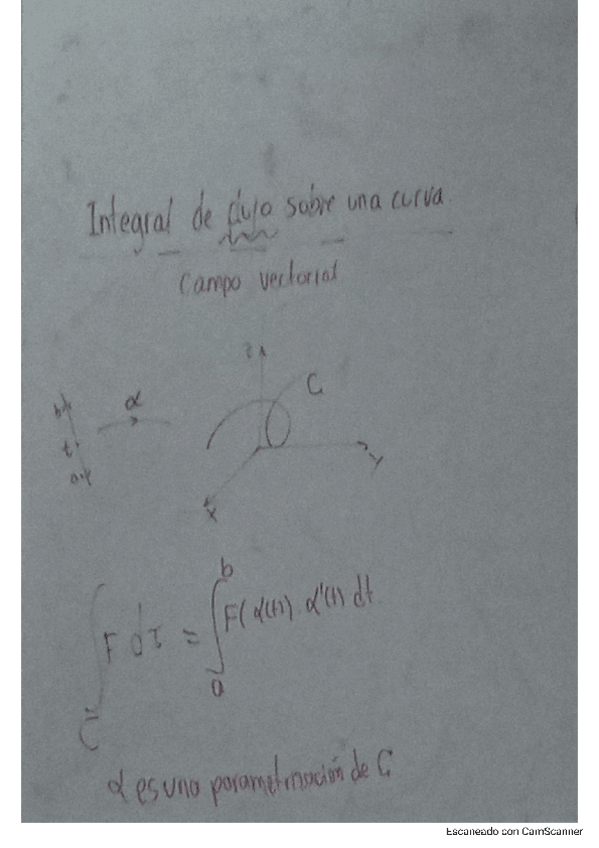 Integral de flujo sobre una curva
Campo vectorial
z
C
b
α
t
a
y
x
∫_C F dτ = ∫_a^b F(α(t)) · α'(t) dt
α es una parametrización de C
Escaneado con CamScanner